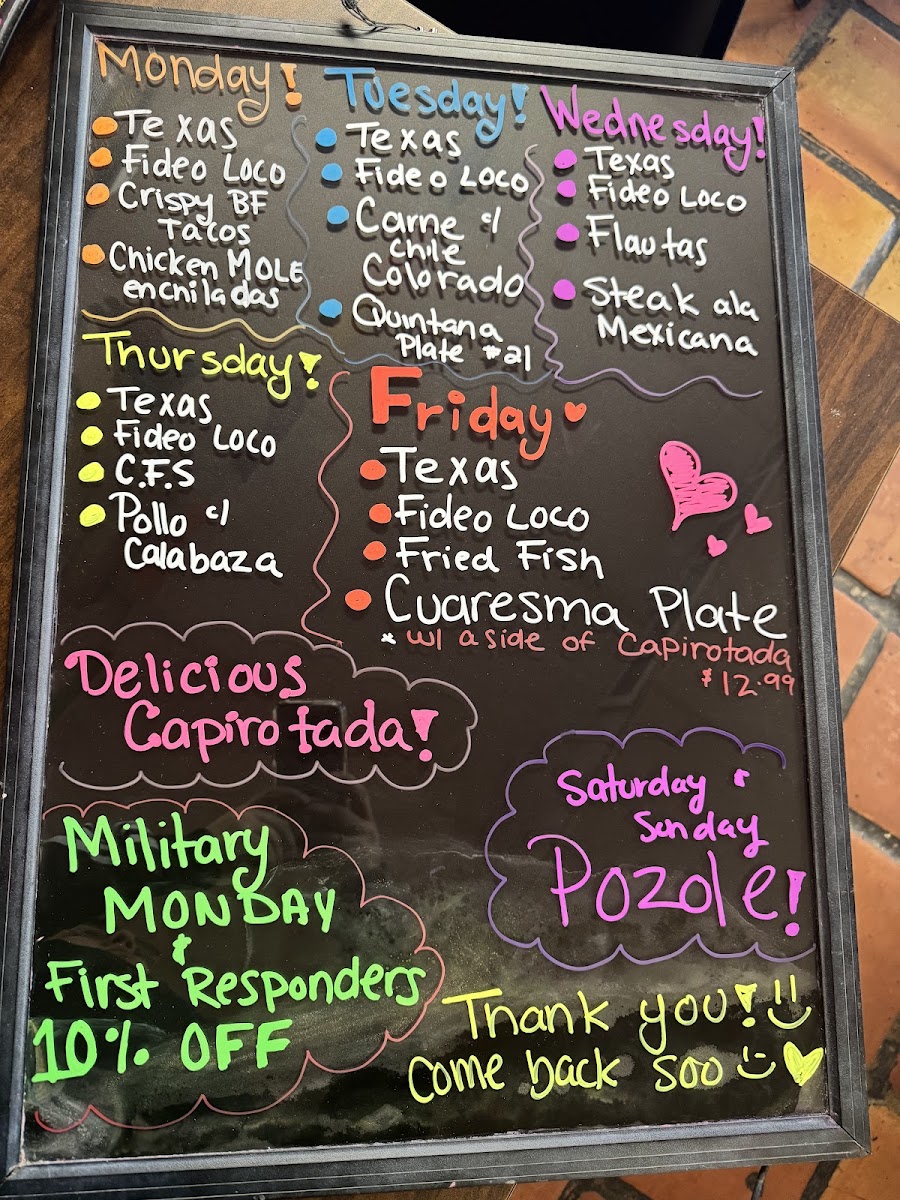 Monday!
Texas
Fideo Loco
Crispy BF
Tacos
Chicken MOLE
enchiladas
Tuesday!
Texas
Fideo Loco
Carne c/
chile
Colorado
Quintana
Plate #21
Wednesday!
Texas
Fideo Loco
Flautas
Steak ala
Mexicana
Thursday!
Texas
Fideo Loco
C.F.S
Pollo c/
Calabaza
Friday
Texas
Fideo Loco
Fried Fish
Cuaresma Plate
* w/ a side of Capirotada
$12.99
Delicious
Capirotada!
Saturday &
Sunday
Pozole!
Military
MONDAY
&
First Responders
10% OFF
Thank you!
Come back soo